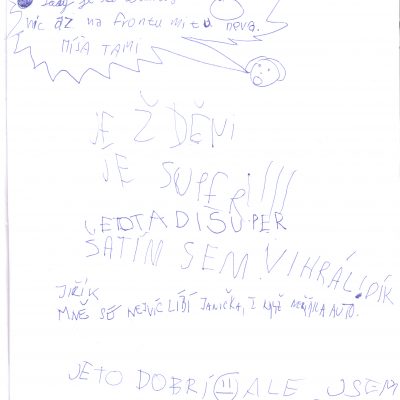 víc až na frontu mi tu nevá.
MÍŠA TAMI
JE ŽDĚNI
JE SUPEŘ!!!!
JE TADI SUPER
ŠATÍN SEM VIHRÁL! DÍK
JIŘÍK
MNĚ SE NEJVÍC LÍBÍ JANIČKA, I KDYŽ AUTO.
JE TO DOBRÍ ALE JSEM